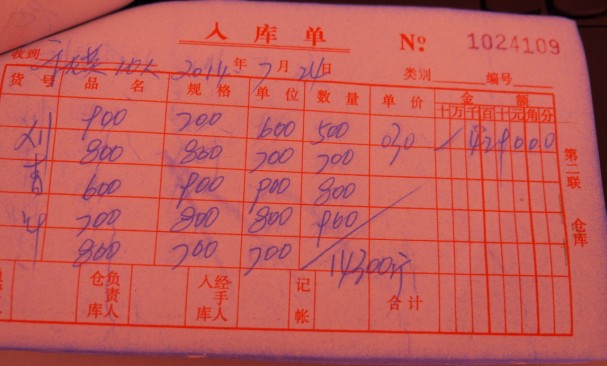 入库单 № 1024109
收到 2014年7月24日 类别 编号
货号 品名 规格 单位 数量 单价 金额
十万千百十元角分
900 700 600 500 0.30 4290.00
800 800 700 700
600 900 900 800
700 800 800 900
800 700 700 14300斤
第二联 仓库
仓库负责人 入库经手人 记帐 合计